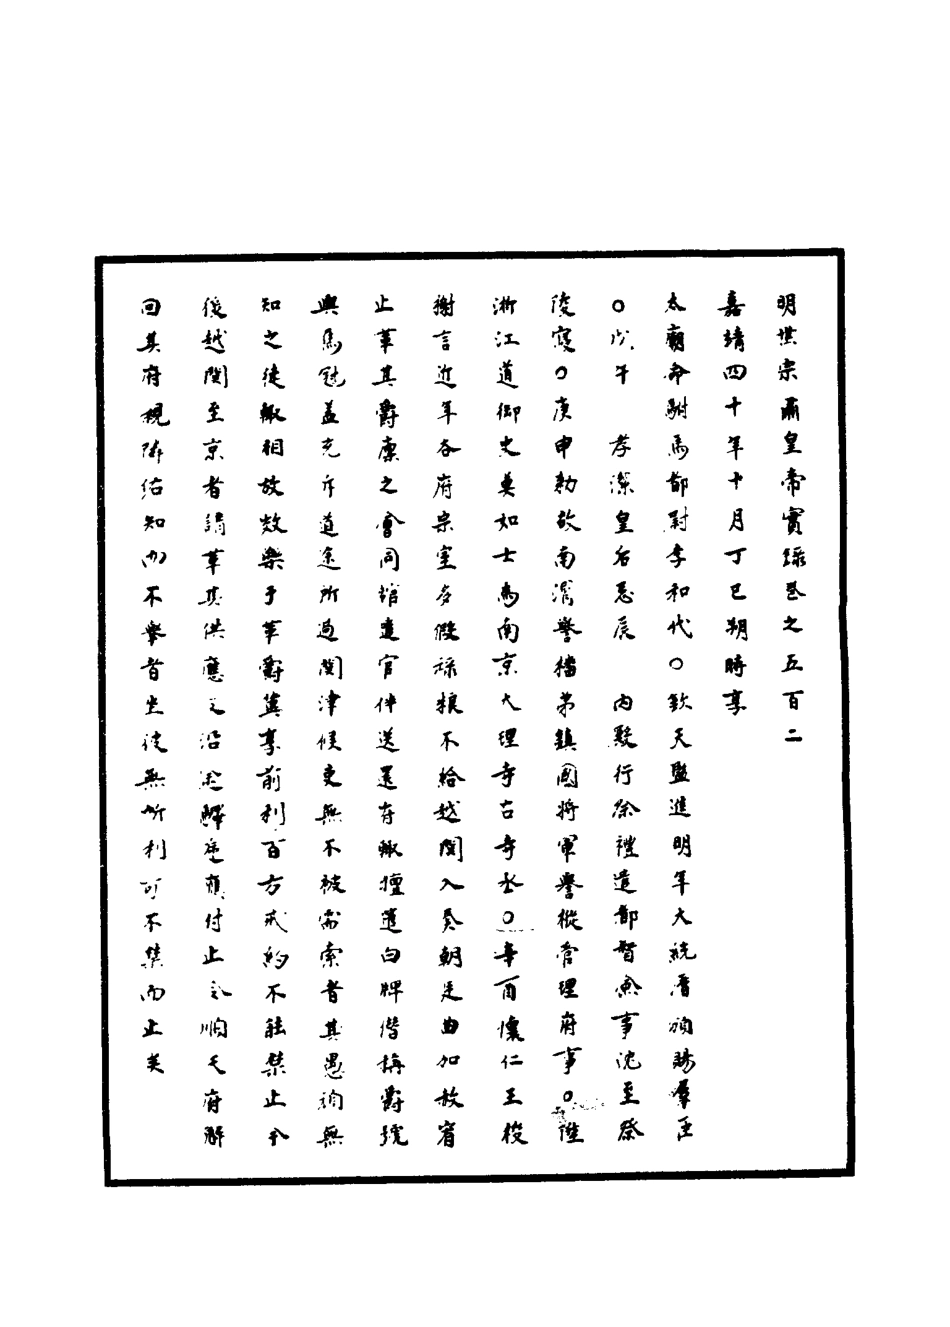 明世宗肅皇帝實錄卷之五百二
嘉靖四十年十月丁巳朔時享
太廟命駙馬都尉李和代○欽天監進明年大統曆頒賜羣臣
○戊午 孝潔皇后忌辰 內殿行祭禮遣都督僉事沈至祭
陵寢○庚申勑故南渭譽橎弟鎮國將軍譽樅管理府事○陞
淅江道御史莫如士為南京大理寺右寺丞○辛酉懷仁王俊
榭言近年各府宗室多假祿粮不給越関入奏朝廷曲加赦宥
止革其爵廪之會同館遣官伴送還府輙擅遣白牌僣稱爵號
輿馬冠蓋充斥道途所過関津候吏無不被需索者其愚詢無
知之徒輙相放效樂于革爵冀享前利百方戒約不能禁止今
後越関至京者請革其供應之沿途驛遞應付止令順天府解
回其府視隣佑知而不舉首坐彼無所利可不禁而止矣